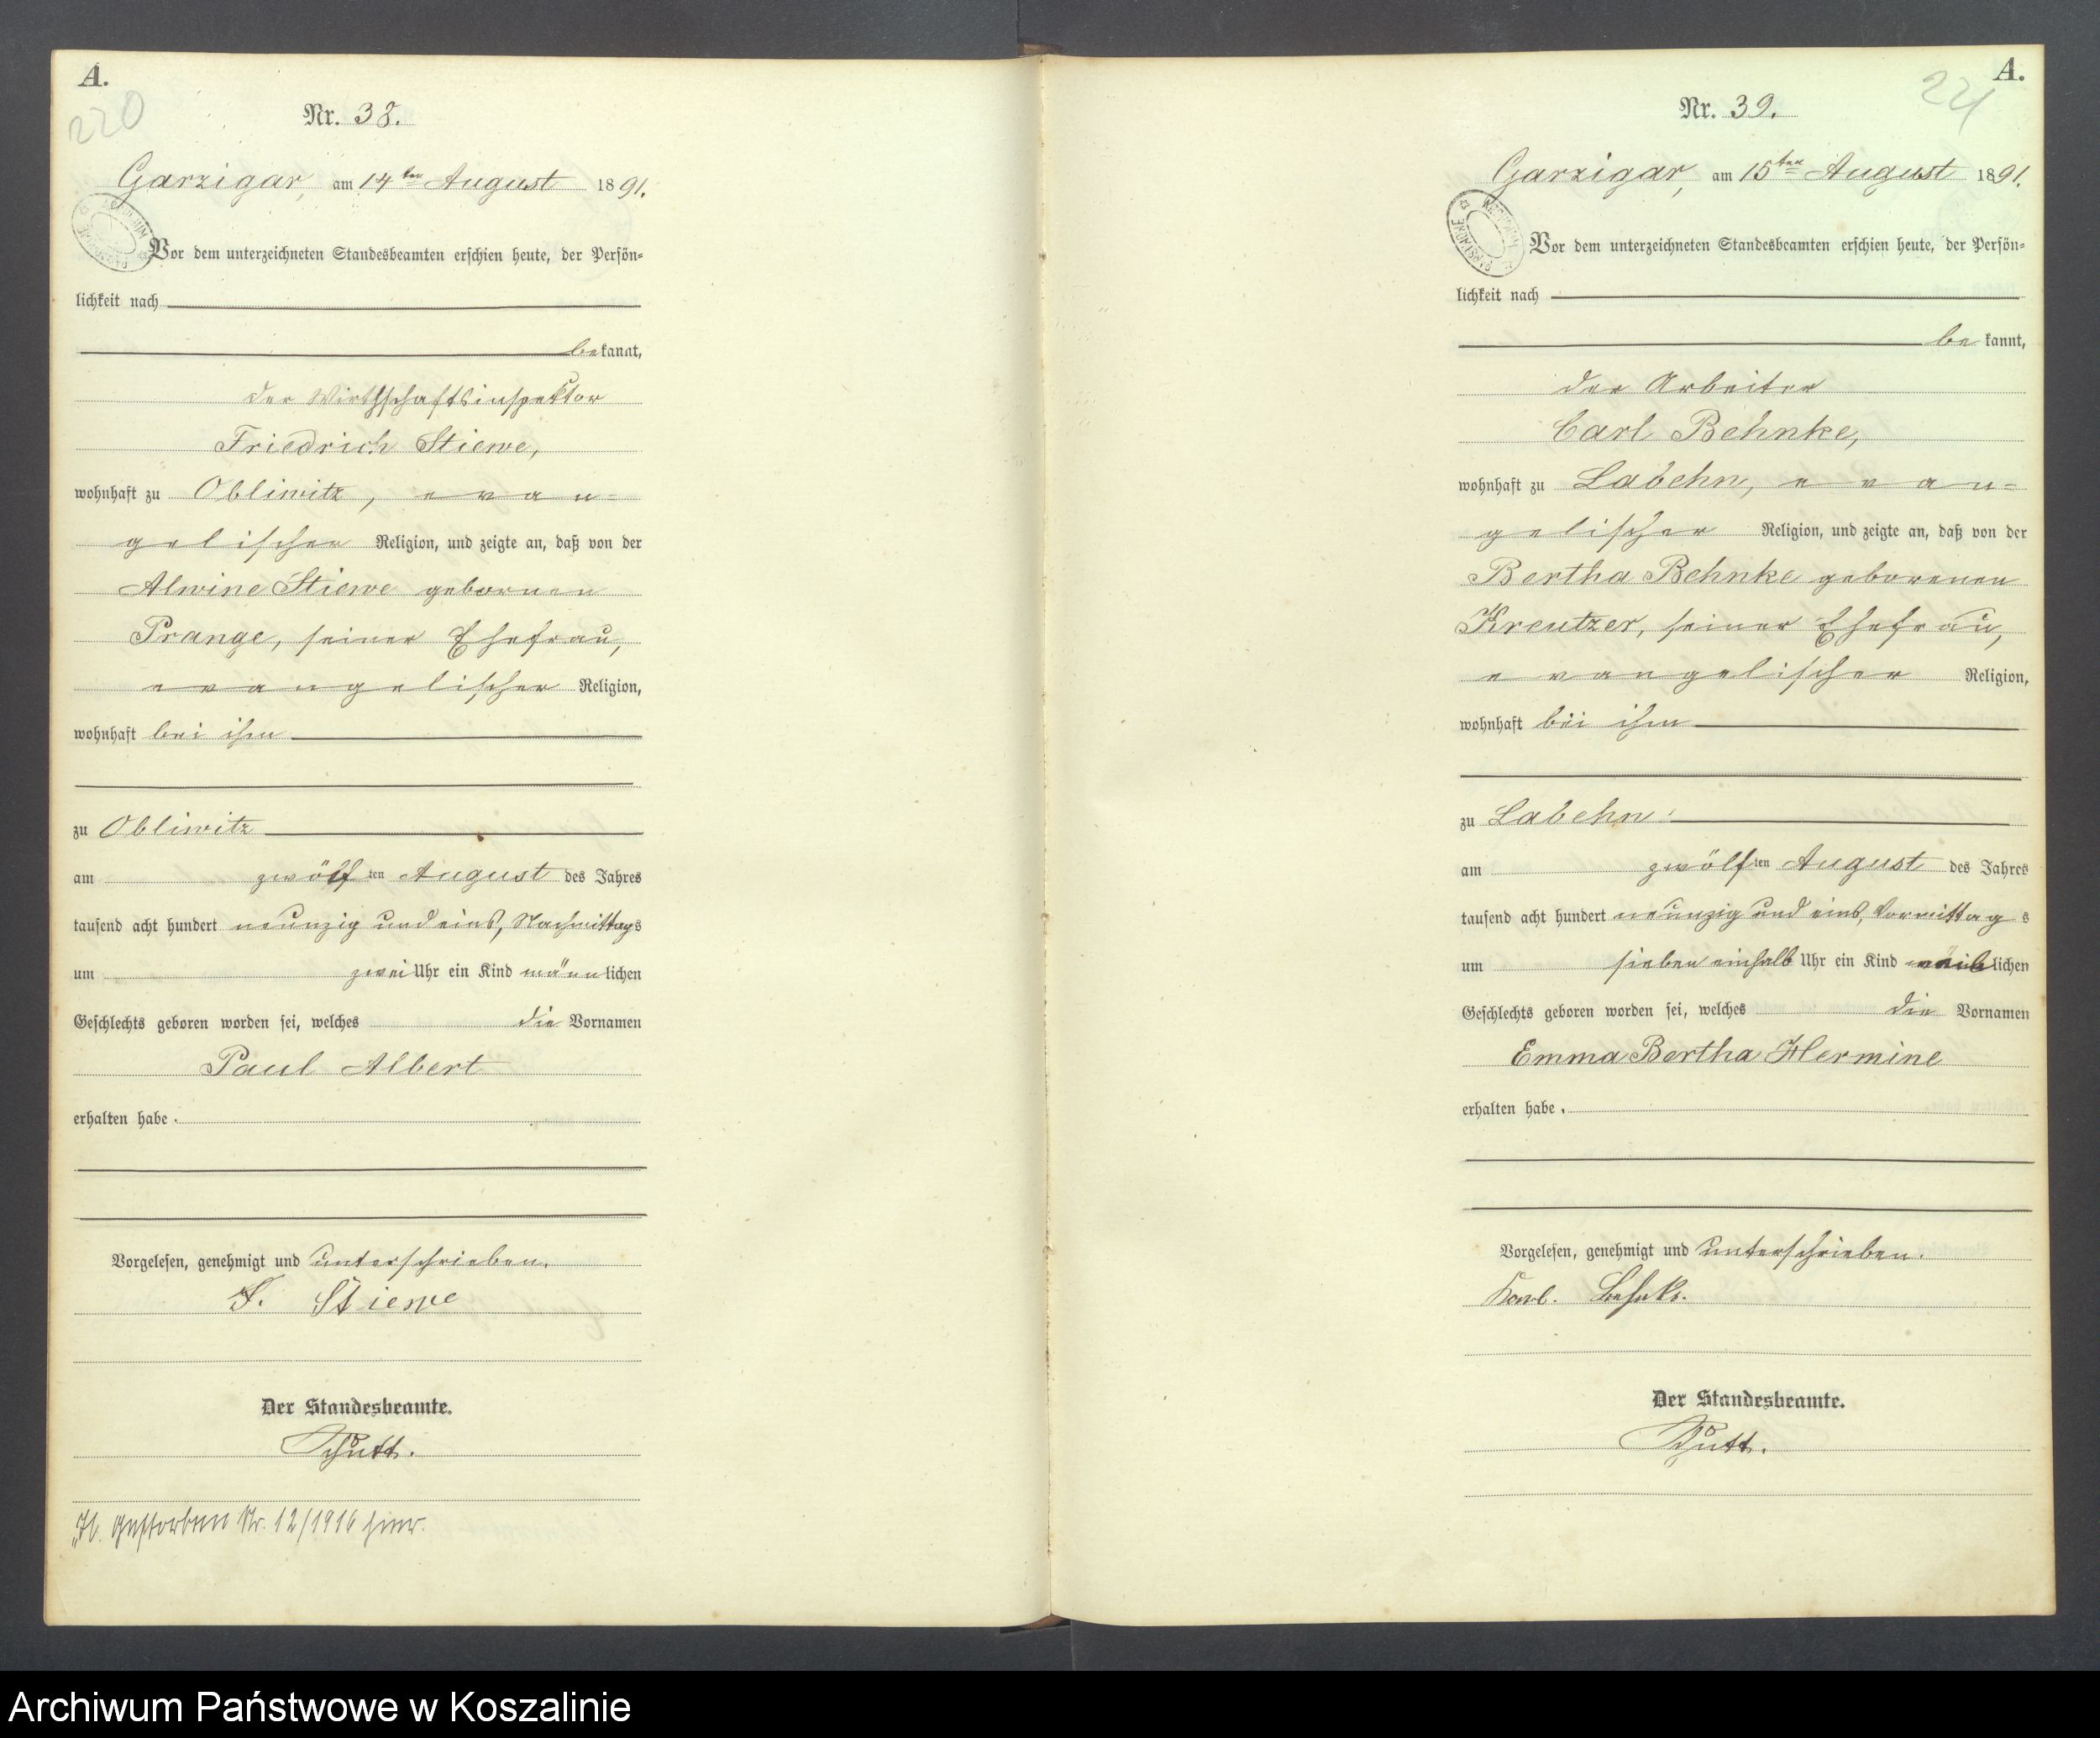 A.
220
Nr. 38.
Garzigar, am 14ten August 1891.
Vor dem unterzeichneten Standesbeamten erschien heute, der Persön-
lichkeit nach
bekannt,
der Wirthschaftsinspektor
Friedrich Stiewe,
wohnhaft zu Obliwitz, evan-
gelischer Religion, und zeigte an, daß von der
Alwine Stiewe gebornen
Prange, seiner Ehefrau,
evangelischer Religion,
wohnhaft bei ihm
zu Obliwitz
am zwölften August des Jahres
tausend acht hundert neunzig und eins, Nachmittags
um zwei Uhr ein Kind männlichen
Geschlechts geboren worden sei, welches die Vornamen
Paul Albert
erhalten habe.
Vorgelesen, genehmigt und unterschrieben.
F. Stiewe
Der Standesbeamte.
Schutt.
Gestorben Nr. 12/1916 hier.
A.
221
Nr. 39.
Garzigar, am 15ten August 1891.
Vor dem unterzeichneten Standesbeamten erschien heute, der Persön-
lichkeit nach
bekannt,
der Arbeiter
Carl Behnke,
wohnhaft zu Labehn, evan-
gelischer Religion, und zeigte an, daß von der
Bertha Behnke geborenen
Kreutzer, seiner Ehefrau,
evangelischer Religion,
wohnhaft bei ihm
zu Labehn
am zwölften August des Jahres
tausend acht hundert neunzig und eins, Vormittags
um sieben einhalb Uhr ein Kind weiblichen
Geschlechts geboren worden sei, welches die Vornamen
Emma Bertha Hermine
erhalten habe.
Vorgelesen, genehmigt und unterschrieben.
Karl Behnke.
Der Standesbeamte.
Schutt.
Archiwum Państwowe w Koszalinie